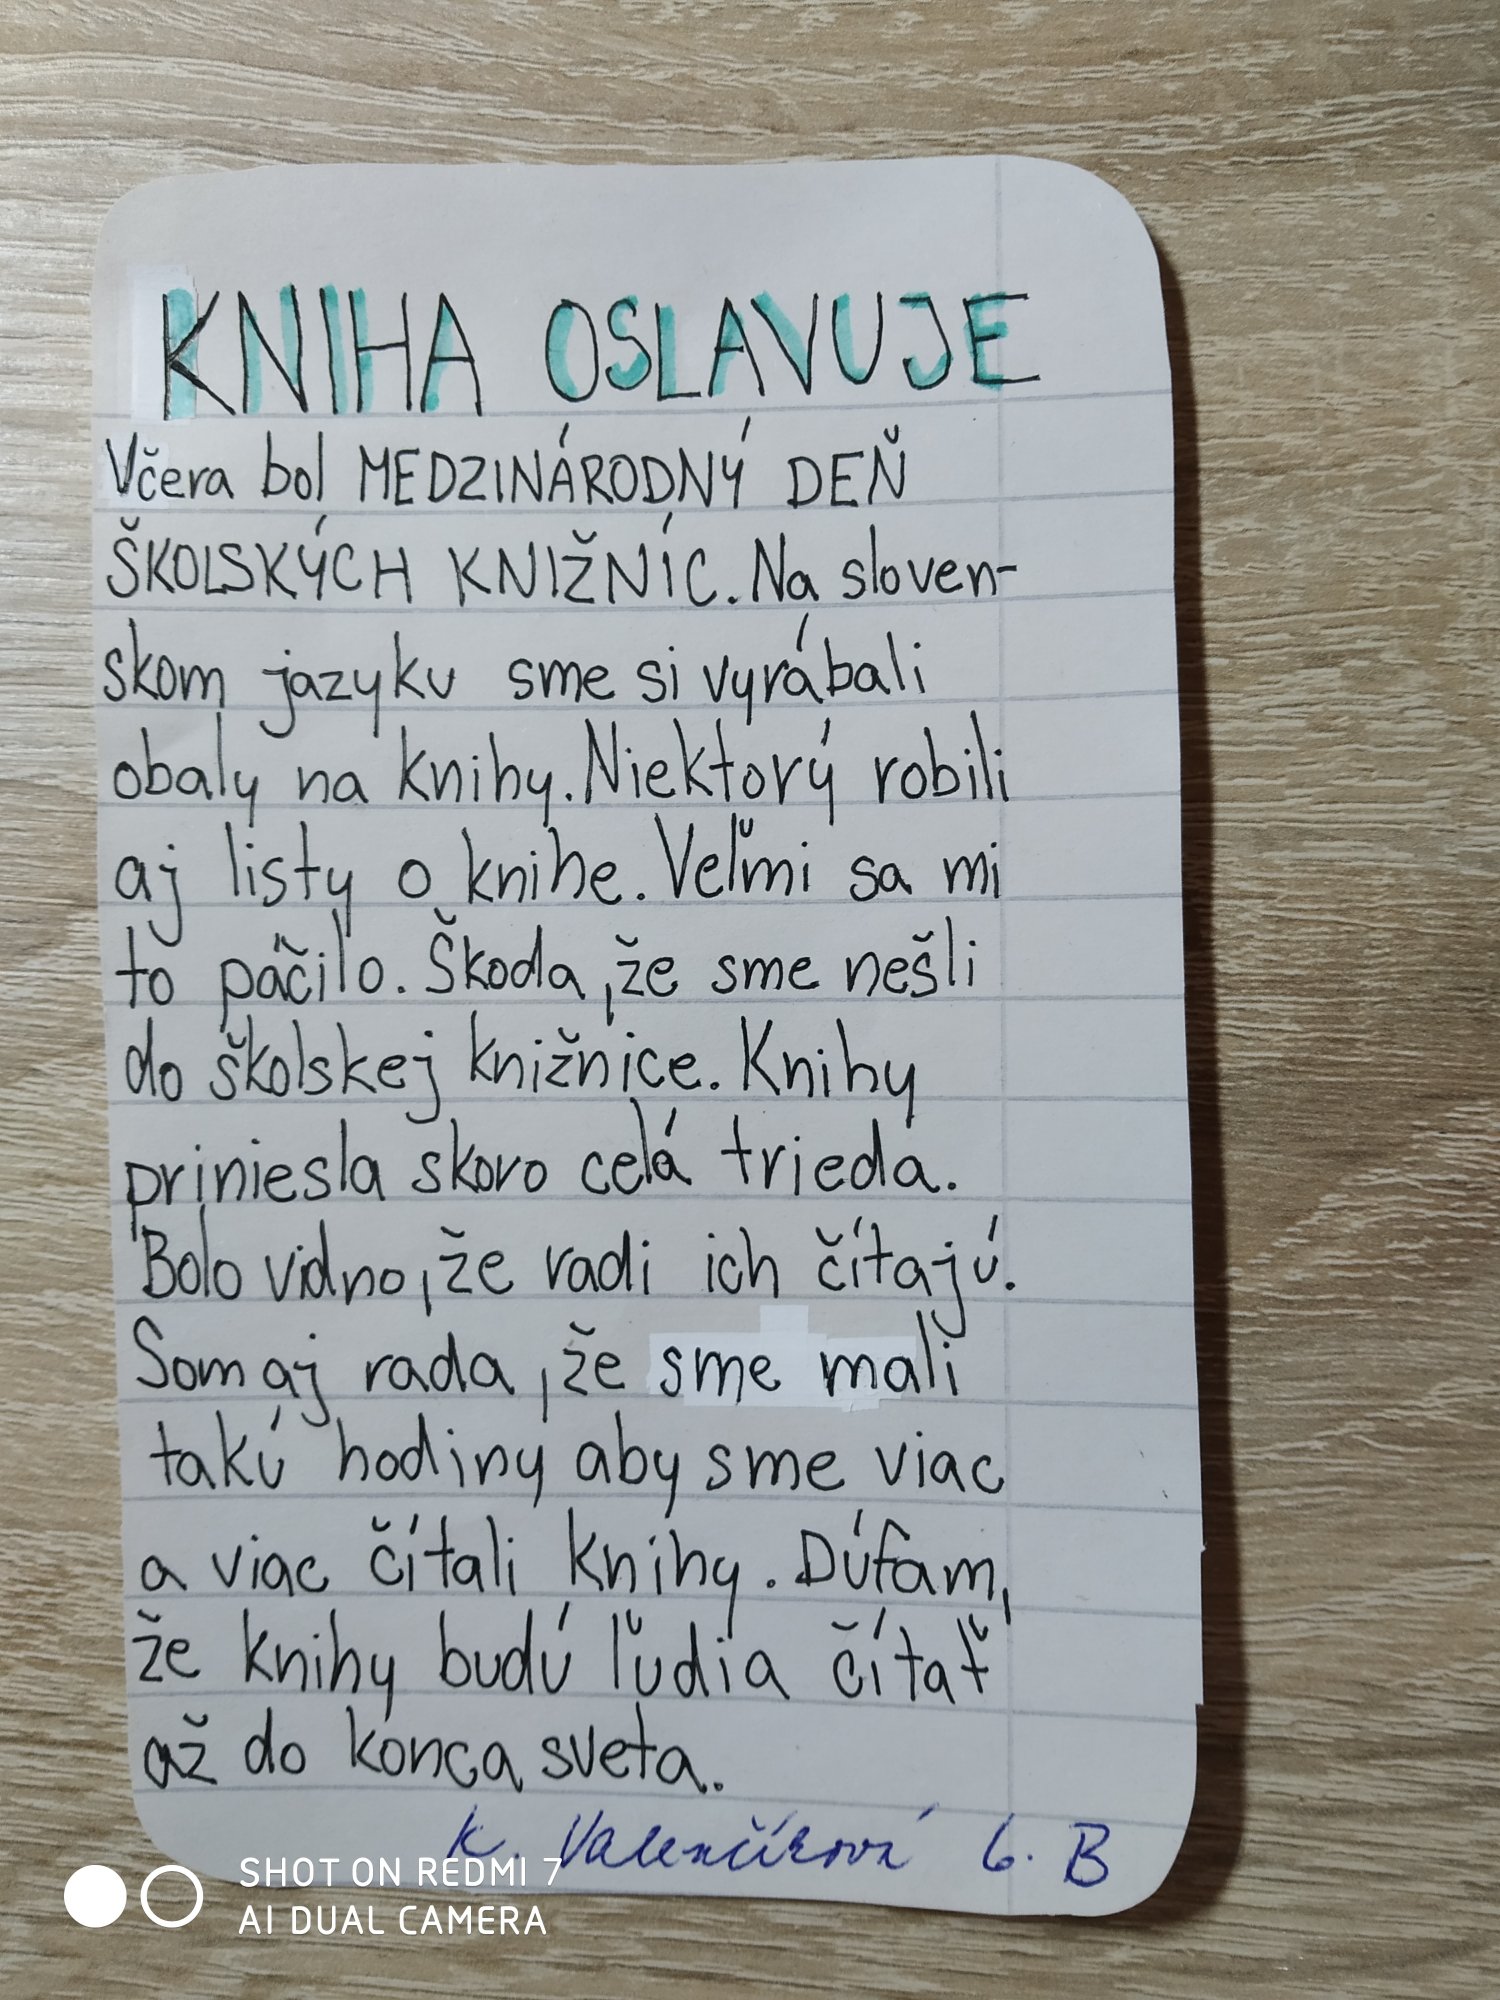 KNIHA OSLAVUJE
Včera bol MEDZINÁRODNÝ DEŇ
ŠKOLSKÝCH KNIŽNÍC. Na sloven-
skom jazyku sme si vyrábali
obaly na knihy. Niektorý robili
aj listy o knihe. Veľmi sa mi
to páčilo. Škoda, že sme nešli
do školskej knižnice. Knihy
priniesla skoro celá trieda.
Bolo vidno, že radi ich čítajú.
Som aj rada, že sme mali
takú hodiny aby sme viac
a viac čítali knihy. Dúfam,
že knihy budú ľudia čítať
až do konca sveta.
K. Valenčíková 6. B
SHOT ON REDMI 7
AI DUAL CAMERA